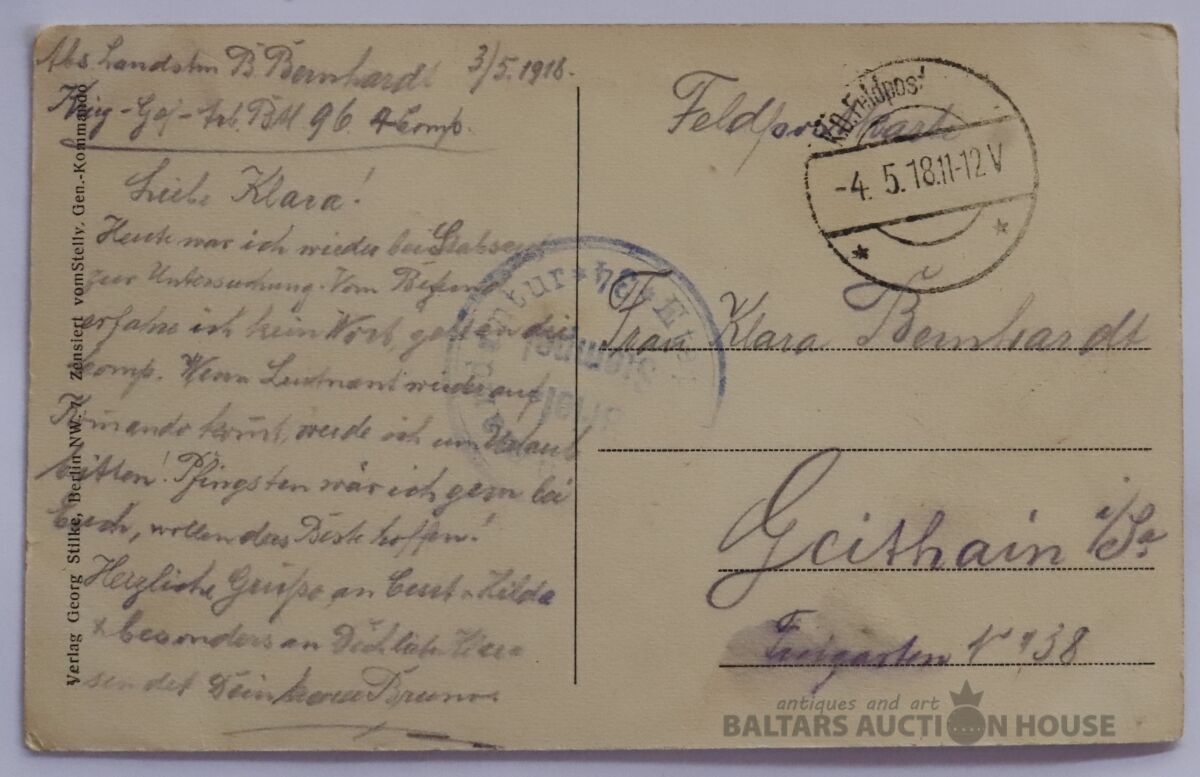 Abs Landstm B Bernhardt 3/5.1918.
Krieg-Gef-Arb. Btl 96. 4 Comp.
Liebe Klara!
Heute war ich wieder bei
zur Untersuchung. Vom
erfahre ich kein Wort,
Comp. Wenn Leutnant wieder auf
Komando komt, werde ich um Urlaub
bitten! Pfingsten wär ich gern bei
Euch, wollen das Beste hoffen!
Herzliche Grüße an Curt u Hilda
besonders an Dich liebe
sendet Dein Bruno
Verlag Georg Stilke, Berlin NW. 7. Zensiert vom Stellv. Gen.-Kommando
Feldpostkarte
K.D.Feldpost
-4. 5. 18.11-12 V
Frau Klara Bernhardt
Geithain i/Sa
N° 38
antiques and art
BALTARS AUCTION HOUSE